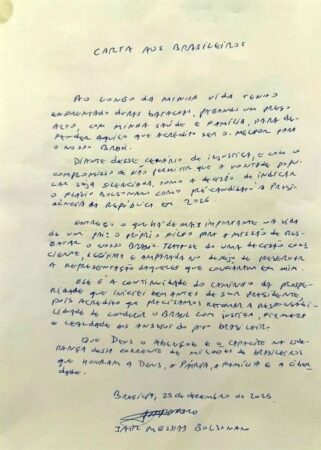 CARTA AOS BRASILEIROS
AO LONGO DA MINHA VIDA TENHO
ENFRENTADO DURAS BATALHAS, PAGANDO UM PREÇO
ALTO, COM MINHA SAÚDE E FAMÍLIA, PARA DE-
FENDER AQUILO QUE ACREDITO SER O MELHOR PARA
O NOSSO BRASIL.
DIANTE DESSE CENÁRIO DE INJUSTIÇA, E COM O
COMPROMISSO DE NÃO PERMITIR QUE A VONTADE POPU-
LAR SEJA SILENCIADA, TOMO A DECISÃO DE INDICAR
O FLÁVIO BOLSONARO COMO PRÉ-CANDIDATO À PRESI-
DÊNCIA DA REPÚBLICA EM 2026
ENTREGO O QUE HÁ DE MAIS IMPORTANTE NA VIDA
DE UM PAI: O PRÓPRIO FILHO PARA A MISSÃO DE RES-
GATAR O NOSSO BRASIL. TRATA-SE DE UMA DECISÃO CONS-
CIENTE, LEGÍTIMA E AMPARADA NO DESEJO DE PRESERVAR
A REPRESENTAÇÃO DAQUELES QUE CONFIARAM EM MIM.
ELE É A CONTINUIDADE DO CAMINHO DA PROSPE-
RIDADE QUE INICIEI BEM ANTES DE SER PRESIDENTE,
POIS ACREDITO QUE PRECISAMOS RETOMAR A RESPONSABI-
LIDADE DE CONDUZIR O BRASIL COM JUSTIÇA, FIRMEZA
E LEALDADE AOS ANSEIOS DO POVO BRASILEIRO.
QUE DEUS O ABENÇOE E O CAPACITE NA LIDE-
RANÇA DESSA CORRENTE DE MILHÕES DE BRASILEIROS
QUE HONRAM A DEUS, A PÁTRIA, A FAMÍLIA E A LIBER-
DADE.
BRASÍLIA, 25 DE DEZEMBRO DE 2025
JAIR MESSIAS BOLSONARO